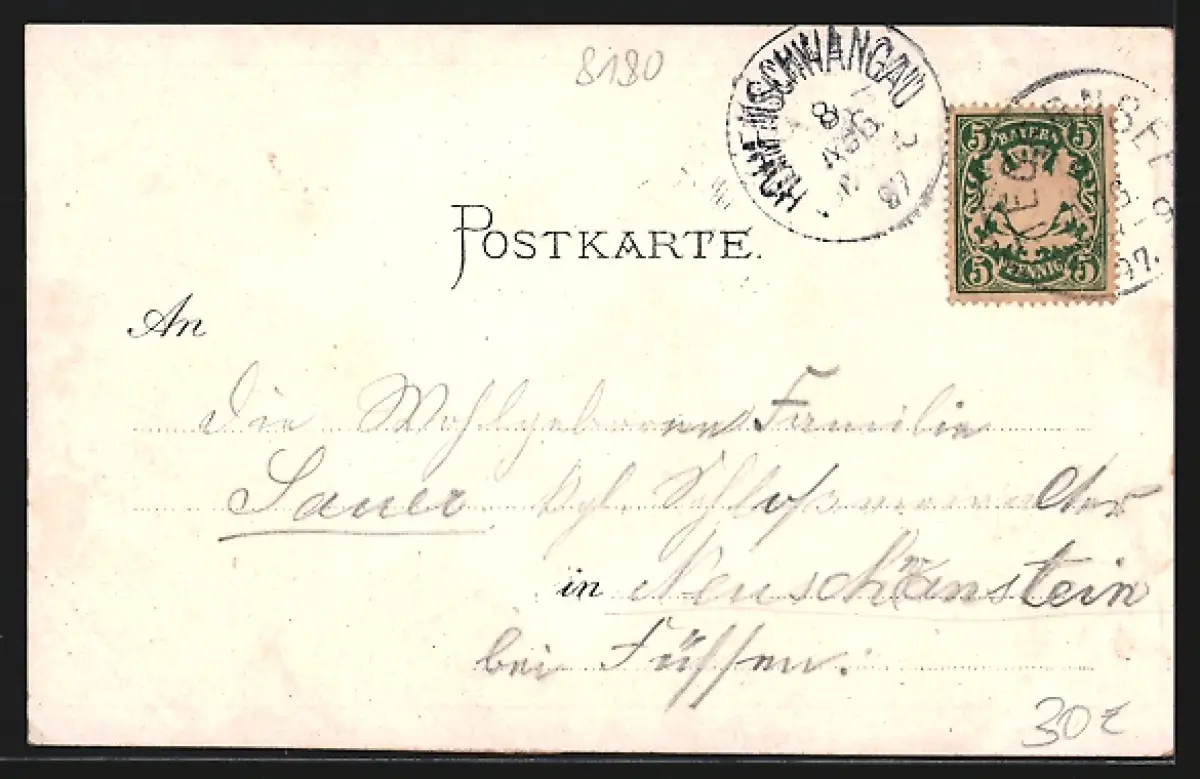 8180
HOHENSCHWANGAU
5 BAYERN 5
5 PFENNIG 5
97.
POSTKARTE.
An
die Wohlgeborene Familie
Sauer kgl. Schloß
in Neuschwanstein
bei Füssen.
30€